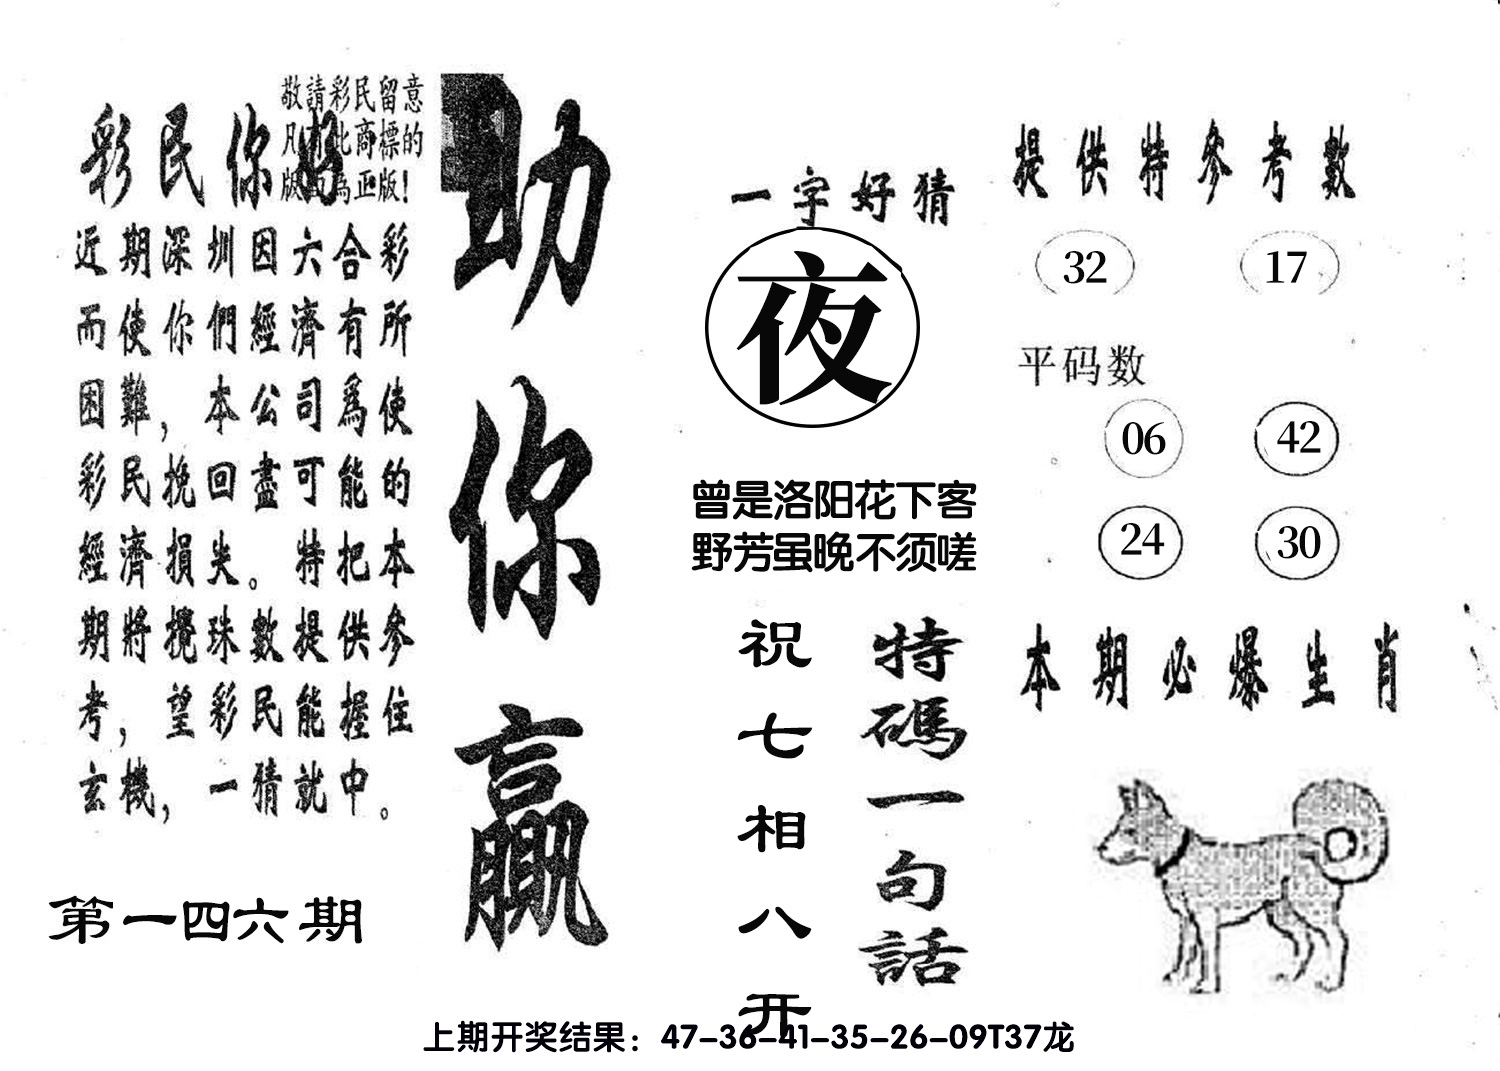 敬請彩民留意
凡有此商標的
版面為正版!
彩民你好
近期深圳因六合彩
而使你們經濟有所
困難，本公司爲使
彩民挽回盡可能的
經濟損失。特把本
期將攪珠數提供參
考，望彩民能握住
玄機，一猜就中。
第一四六期
助你赢
一字好猜
夜
曾是洛阳花下客
野芳虽晚不须嗟
特碼一句話
祝七相八开
提供特參考數
32 17
平码数
06 42
24 30
本期必爆生肖
上期开奖结果：47-36-41-35-26-09T37龙